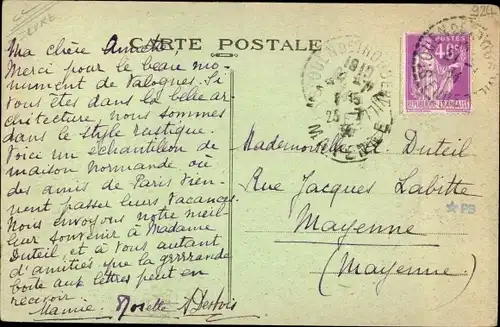 924
EURE
CARTE POSTALE
Ma chère Annette
Merci pour le beau mo-
nument de Valognes. Si
vous êtes dans la belle ar-
chitecture, nous sommes
dans le style rustique.
Voici un échantillon de
maison normande où
des amis de Paris vien-
nent passer leurs vacances
Nous envoyons notre meil-
leur souvenir à Madame
Duteil, et à vous autant
d'amitiés que la grrrrande
boîte aux lettres peut en
recevoir.
Mamie. Nosette
POSTES
40c
REPUBLIQUE FRANÇAISE
MAYENNE
Mademoiselle A. Duteil
Rue Jacques Labitte
Mayenne
(Mayenne)
PB